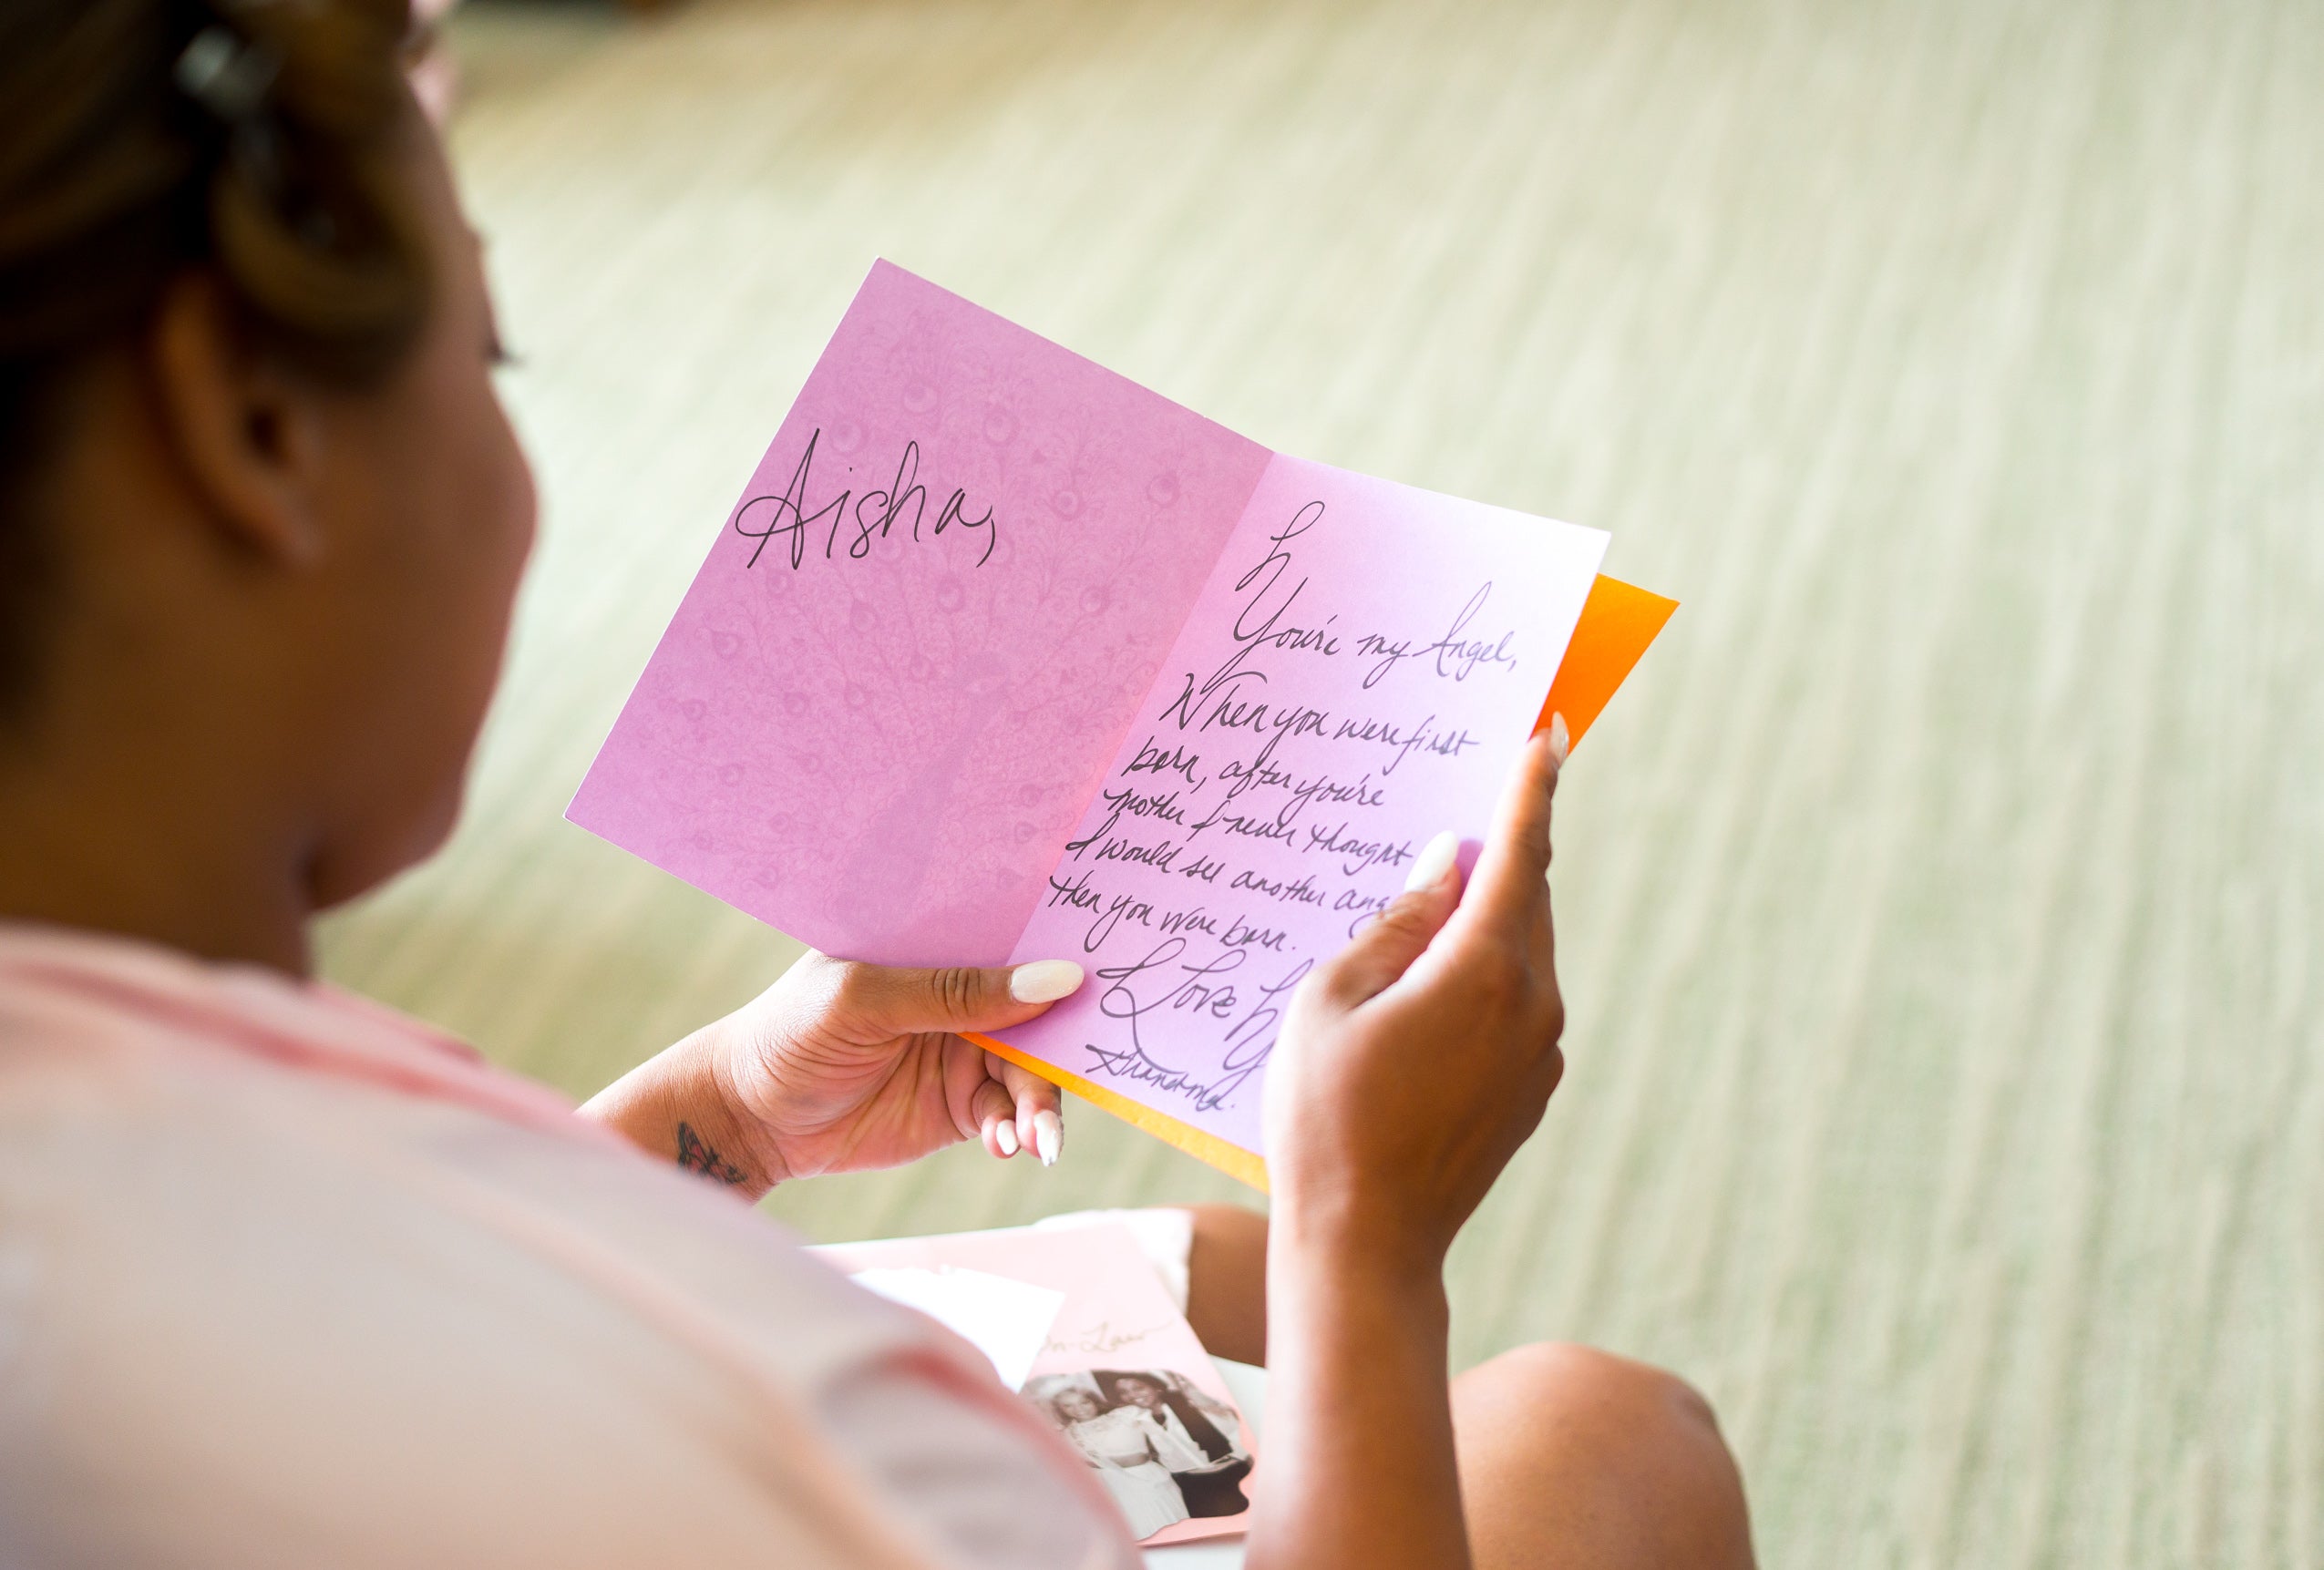 Aisha,
You're my Angel,
When you were first
born, after you're
mother I never thought
I would see another
then you were born.
I Love
Grandma.
In-Law